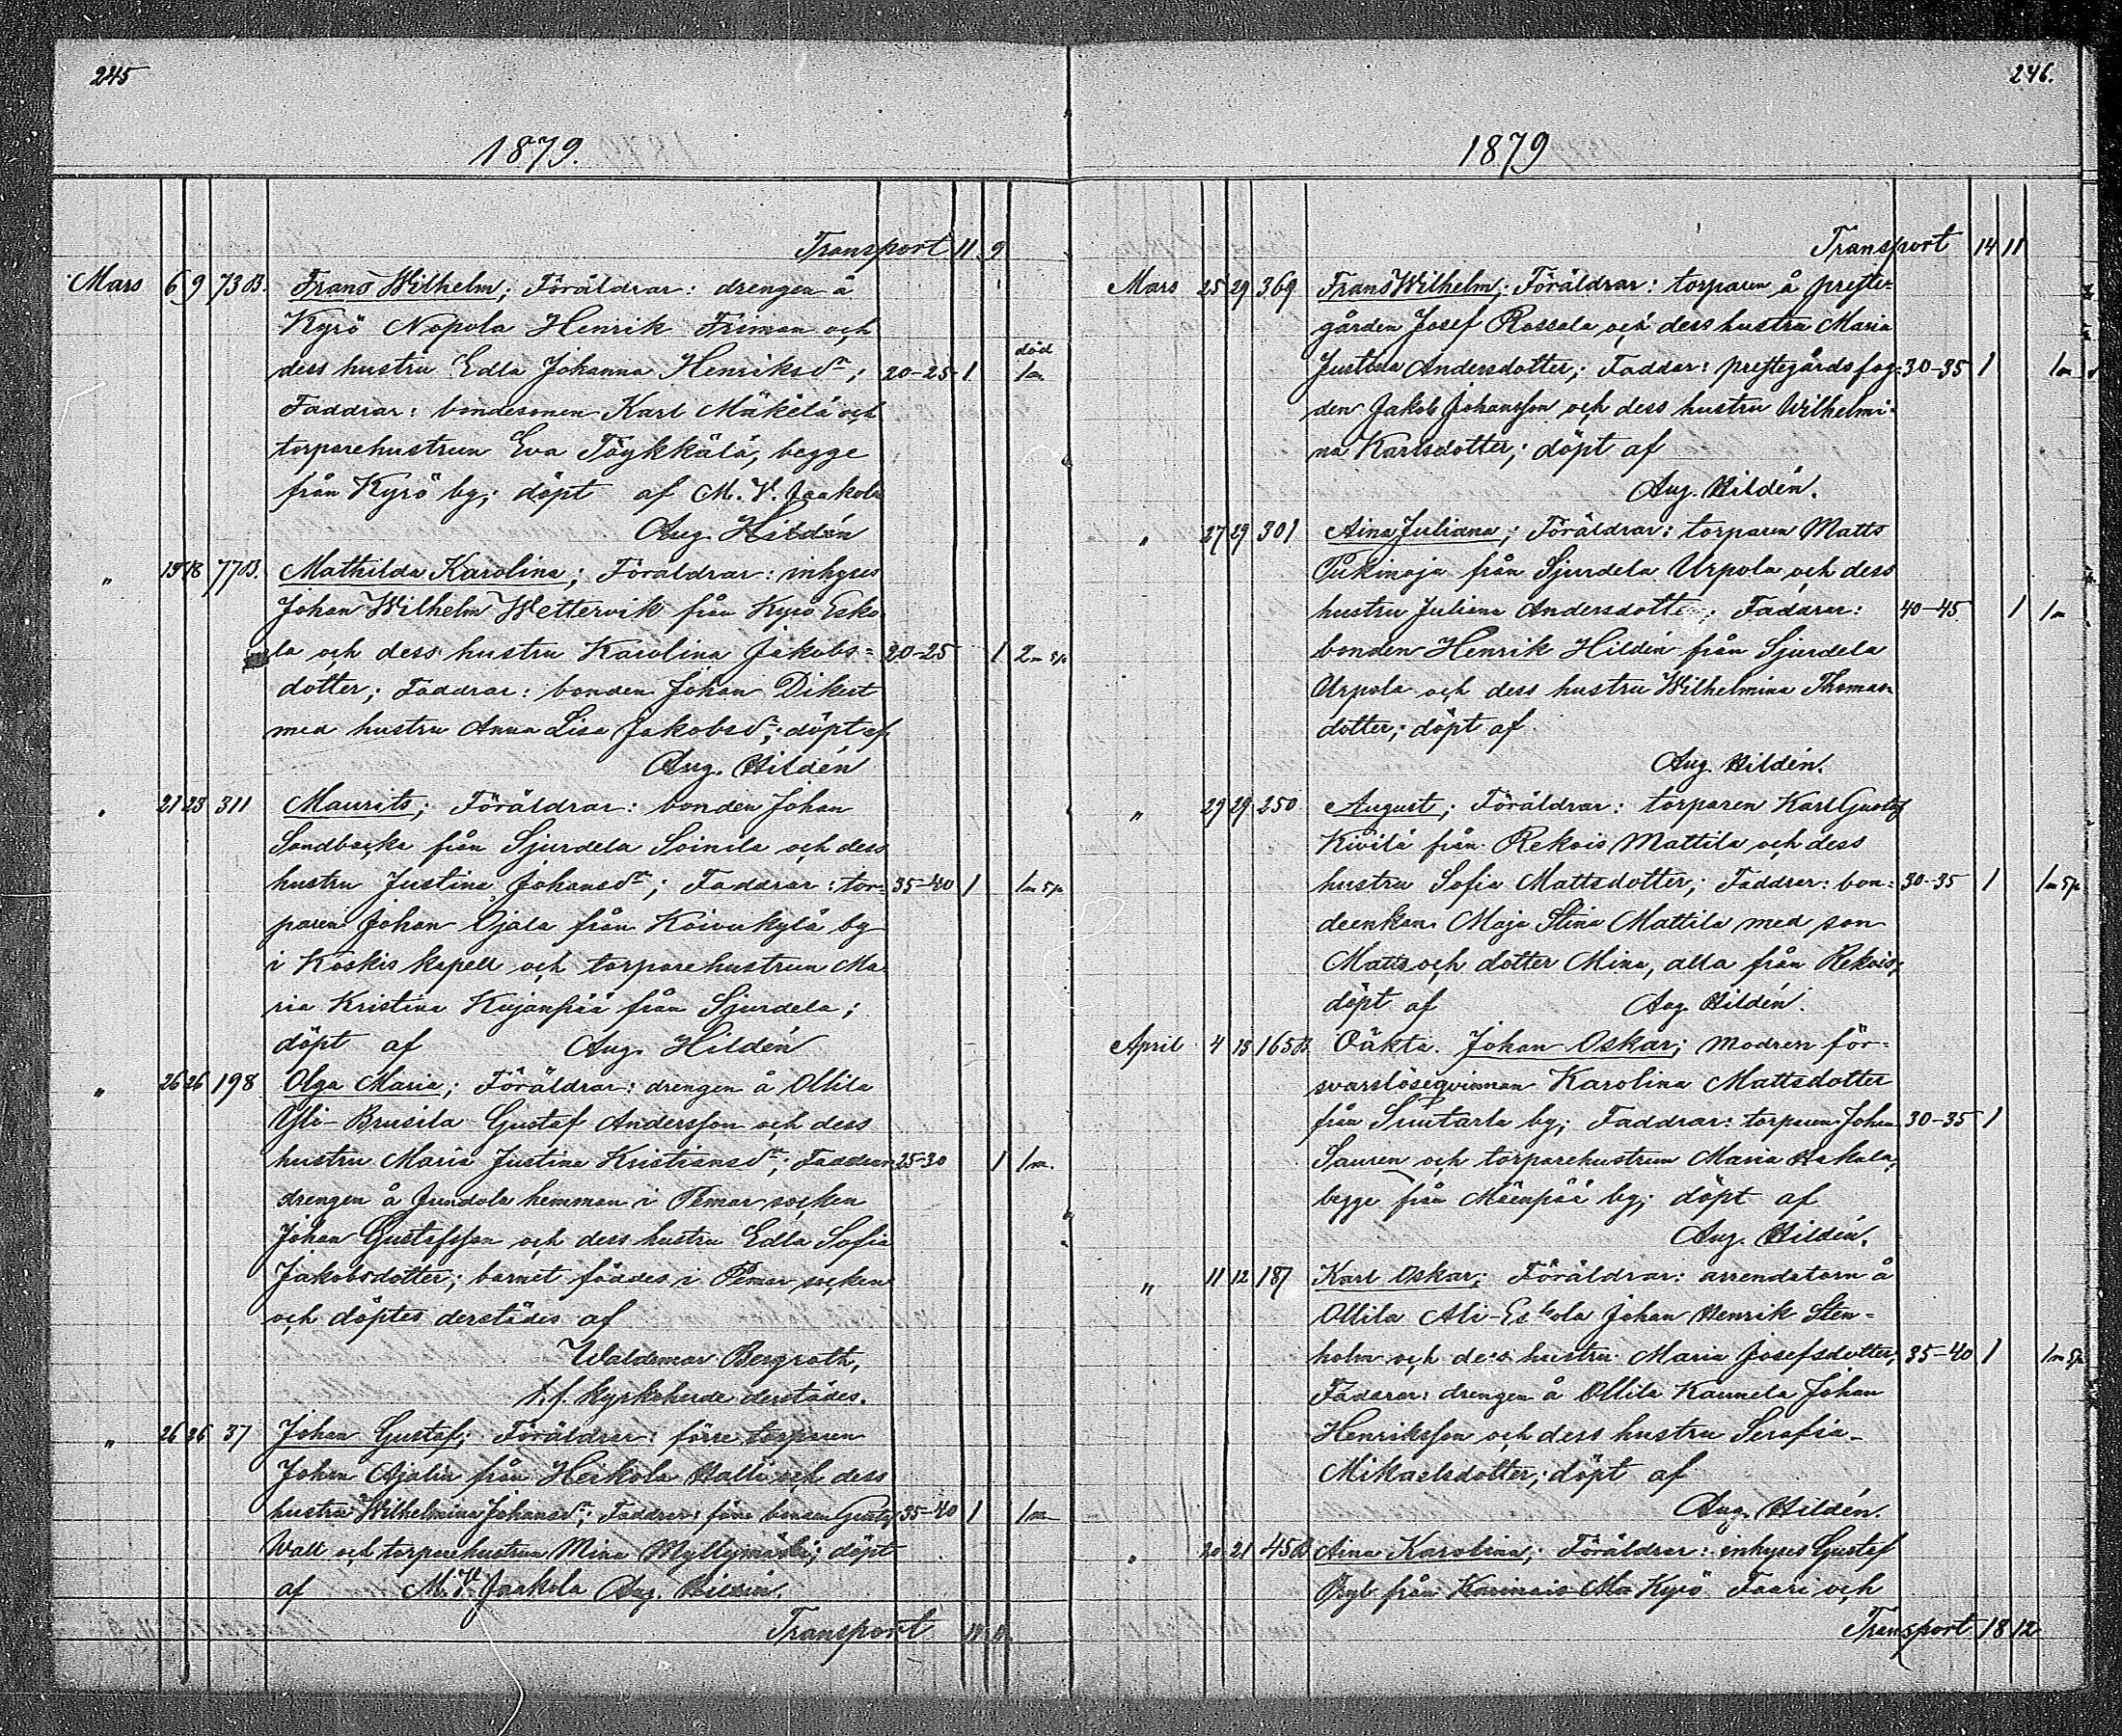 245
1879.
Transport 11 9
Mars 6 9 73 B. Frans Wilhelm; Föräldrar: drengen å
Kyrö Nopola Henrik Friman och
död
dess hustru Edla Johanna Henriksdr; 20-25 1 1 m.
Faddrar: bondesonen Karl Mäkelä och
torparehustrun Eva Töykkälä, begge
från Kyrö by; döpt af M. V. Jaakola
Aug. Hildén
" 15 18 77 B. Mathilda Karolina; Föräldrar: inhyses
Johan Wilhelm Wettervik från Kyrö Esko
la och dess hustru Karolina Jakobs= 20-25 1 2 m
dotter; Faddrar: bonden Johan Dikert
med hustru Anna Lisa Jakobsdr; döpt af
Aug. Hildén
" 21 23 311 Maurits; Föräldrar: bonden Johan
Sandbacka från Sjurdela Soinila och dess
hustru Justina Johansdr; Faddrar: tor- 35-40 1 1 m 5 p
paren Johan Ojala från Koivukylä by
i Koskis kapell och torparehustrun Ma
ria Kristina Kujanpää från Sjurdela;
döpt af Aug. Hildén
" 26 26 198 Olga Maria; Föräldrar: drengen å Ollila
Yli-Brusila Gustaf Andersson och dess
hustru Maria Justina Kristiansdr; Faddrar: 25-30 1 1 m.
drengen å Jundola hemman i Pemar socken
Johan Gustafsson och dess hustru Edla Sofia
Jakobsdotter; barnet föddes i Pemar socken
och döptes derstädes af
Waldemar Bergroth,
t.f. kyrkoherde derstädes.
" 26 26 37 Johan Gustaf; Föräldrar: förre torparen
Johan Ajalin från Heikola Halli och dess
hustru Wilhelmina Johansdr; Faddrar: förre bonden Gustaf 35-40 1 1 m
Wall och torparehustrun Mina Myllymäki; döpt
af M. V. Jaakola Aug. Hildén.
Transport 14 11
246.
1879
Transport 14 11
Mars 25 29 369 Frans Wilhelm; Föräldrar: torparen å preste-
gården Josef Rossala och dess hustru Maria
Justina Andersdotter; Faddrar: prestegårdsfog- 30-35 1 1 m
den Jakob Johansson och dess hustru Wilhelmi-
na Karlsdotter; döpt af
Aug. Hildén.
" 27 29 301 Aina Juliana; Föräldrar: torparen Matts
Pukinoja från Sjurdela Urpola och dess
hustru Juliana Andersdotter; Faddrar: 40-45 1 1 m
bonden Henrik Hildén från Sjurdela
Urpola och dess hustru Wilhelmina Thomas
dotter; döpt af
Aug. Hildén.
" 29 29 250 August; Föräldrar: torparen Karl Gustaf
Kivilä från Rekois Mattila och dess
hustru Sofia Mattsdotter; Faddrar: bon- 30-35 1 1 m 5 p
deenkan Maja Stina Mattila med son
Matts och dotter Mina, alla från Rekois;
döpt af Aug. Hildén.
April 4 13 165 B Oäkta. Johan Oskar; modren för-
svarslöseqvinnan Karolina Mattsdotter
från Suutarla by; Faddrar: torparen Johan 30-35 1
Sauren och torparehustrun Maria Hakala,
begge från Mäenpää by; döpt af
Aug. Hildén.
" 11 12 187 Karl Oskar; Föräldrar: arrendatorn å
Ollila Ali-Eskola Johan Henrik Sten-
holm och dess hustru Maria Josefsdotter, 35-40 1 1 m 5 p
Faddrar: drengen å Ollila Kaunela Johan
Henriksson och dess hustru Serafia
Mikaelsdotter; döpt af
Aug. Hildén.
" 20 21 45 B Aina Karolina; Föräldrar: inhyses Gustaf
Byl från Karinais Ma Kyrö Faari och
Transport 18 12